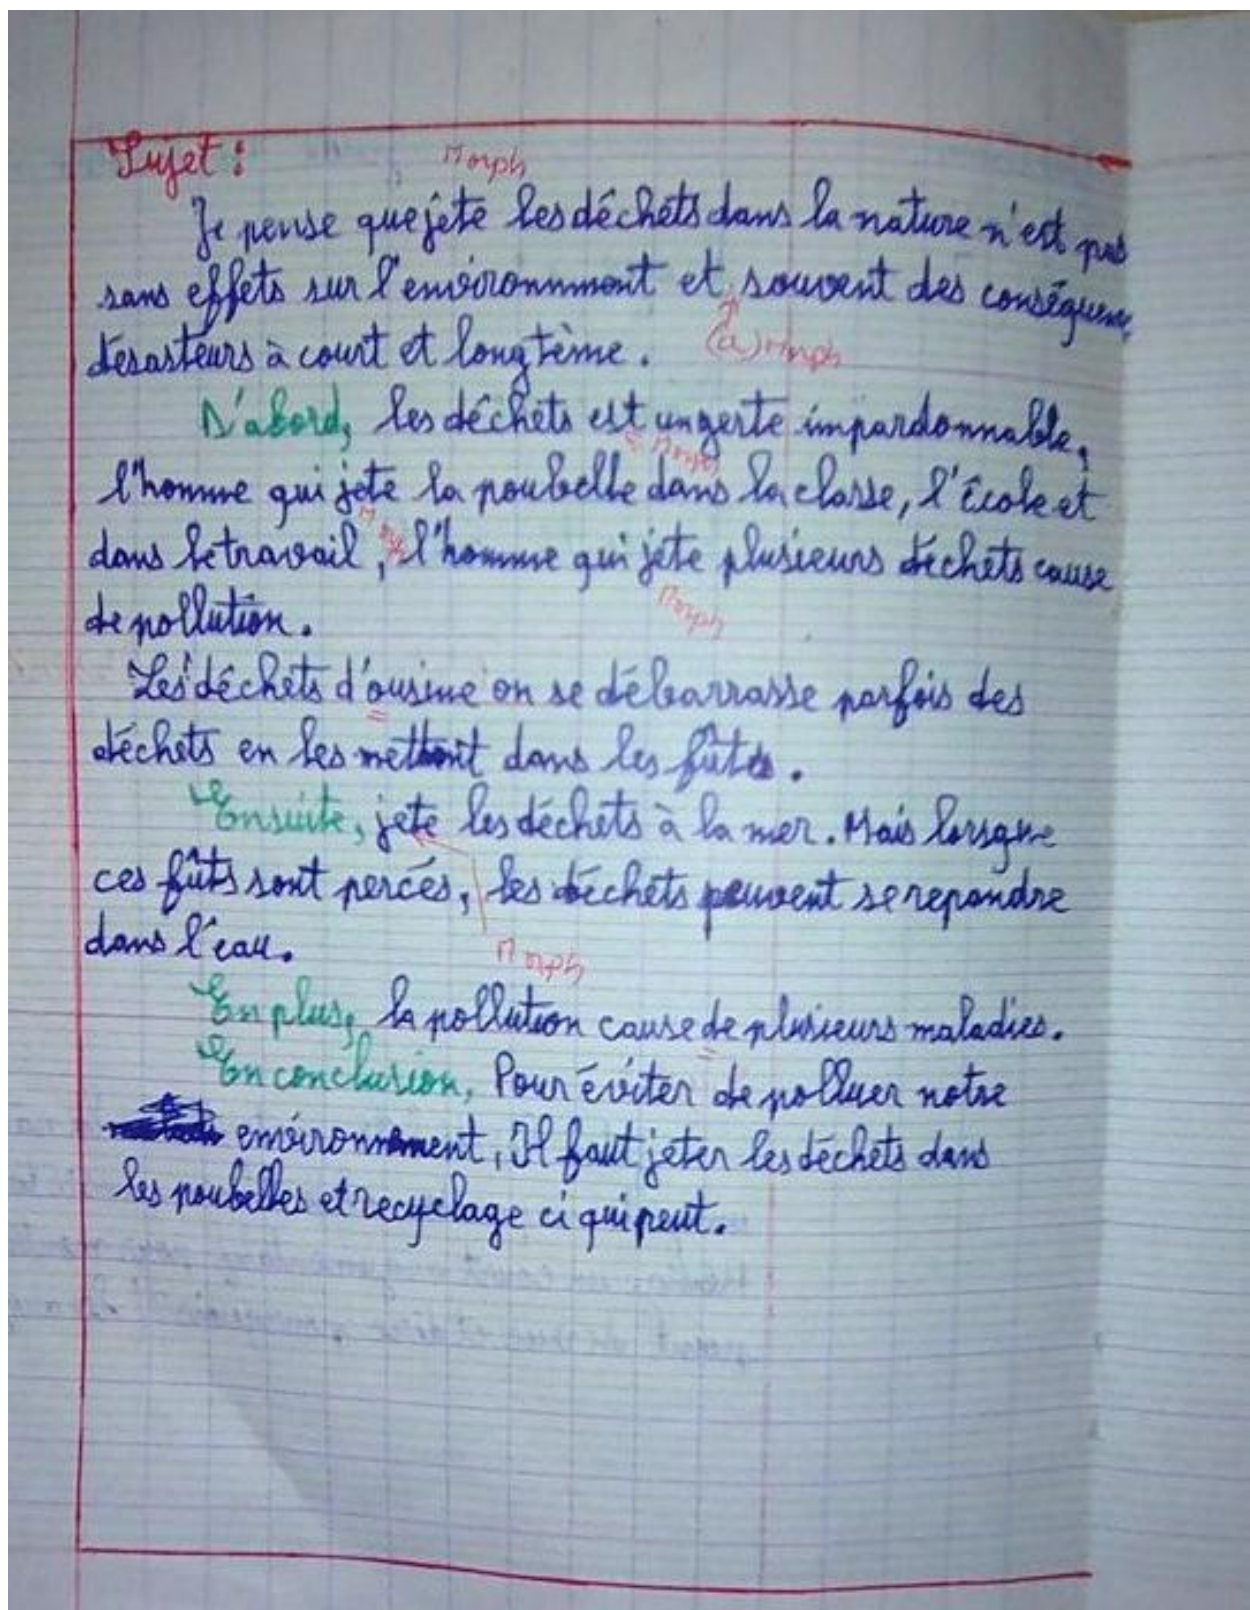 Sujet :
Morph
Je pense que jeté les déchéts dans la nature n'est pas
sans effets sur l'environnment et souvent des conséquenc
désasteurs à court et long tème.
(a) Morph
D'abord, les déchéts est un gerte impardonnable,
Morph
l'homme qui jete la poubelle dans la classe, l'École et
Morph
dans le travail, l'homme qui jéte plusieurs déchets cause
Morph
de pollution.
Les déchets d'ousine on se débarrasse parfois des
déchets en les mettant dans les fûts.
Ensuite, jeté les déchets à la mer. Mais lorsque
ces fûts sont percés, les déchets peuvent se repondre
dans l'eau.
Morph
En plus, la pollution cause de plusieurs maladies.
En conclusion, Pour éviter de polluer notre
environnement, Il faut jeter les déchets dans
les poubelles et recyclage ci qui peut.